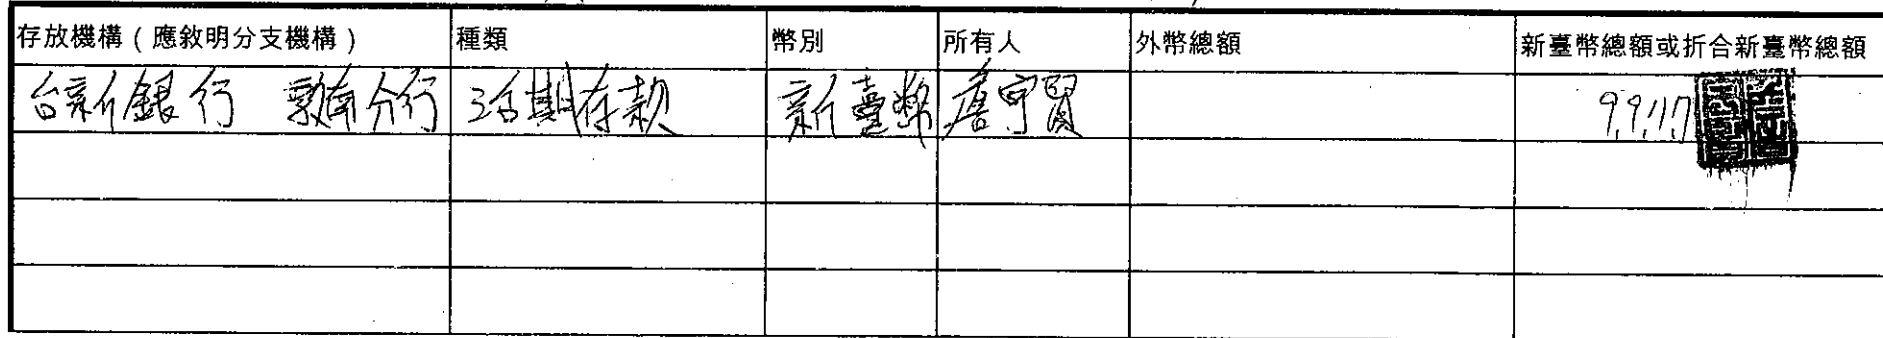 存放機構(應敘明分支機構) 種類 幣別 所有人 外幣總額 新臺幣總額或折合新臺幣總額
台新銀行 敦南分行 活期存款 新臺幣 唐守賢